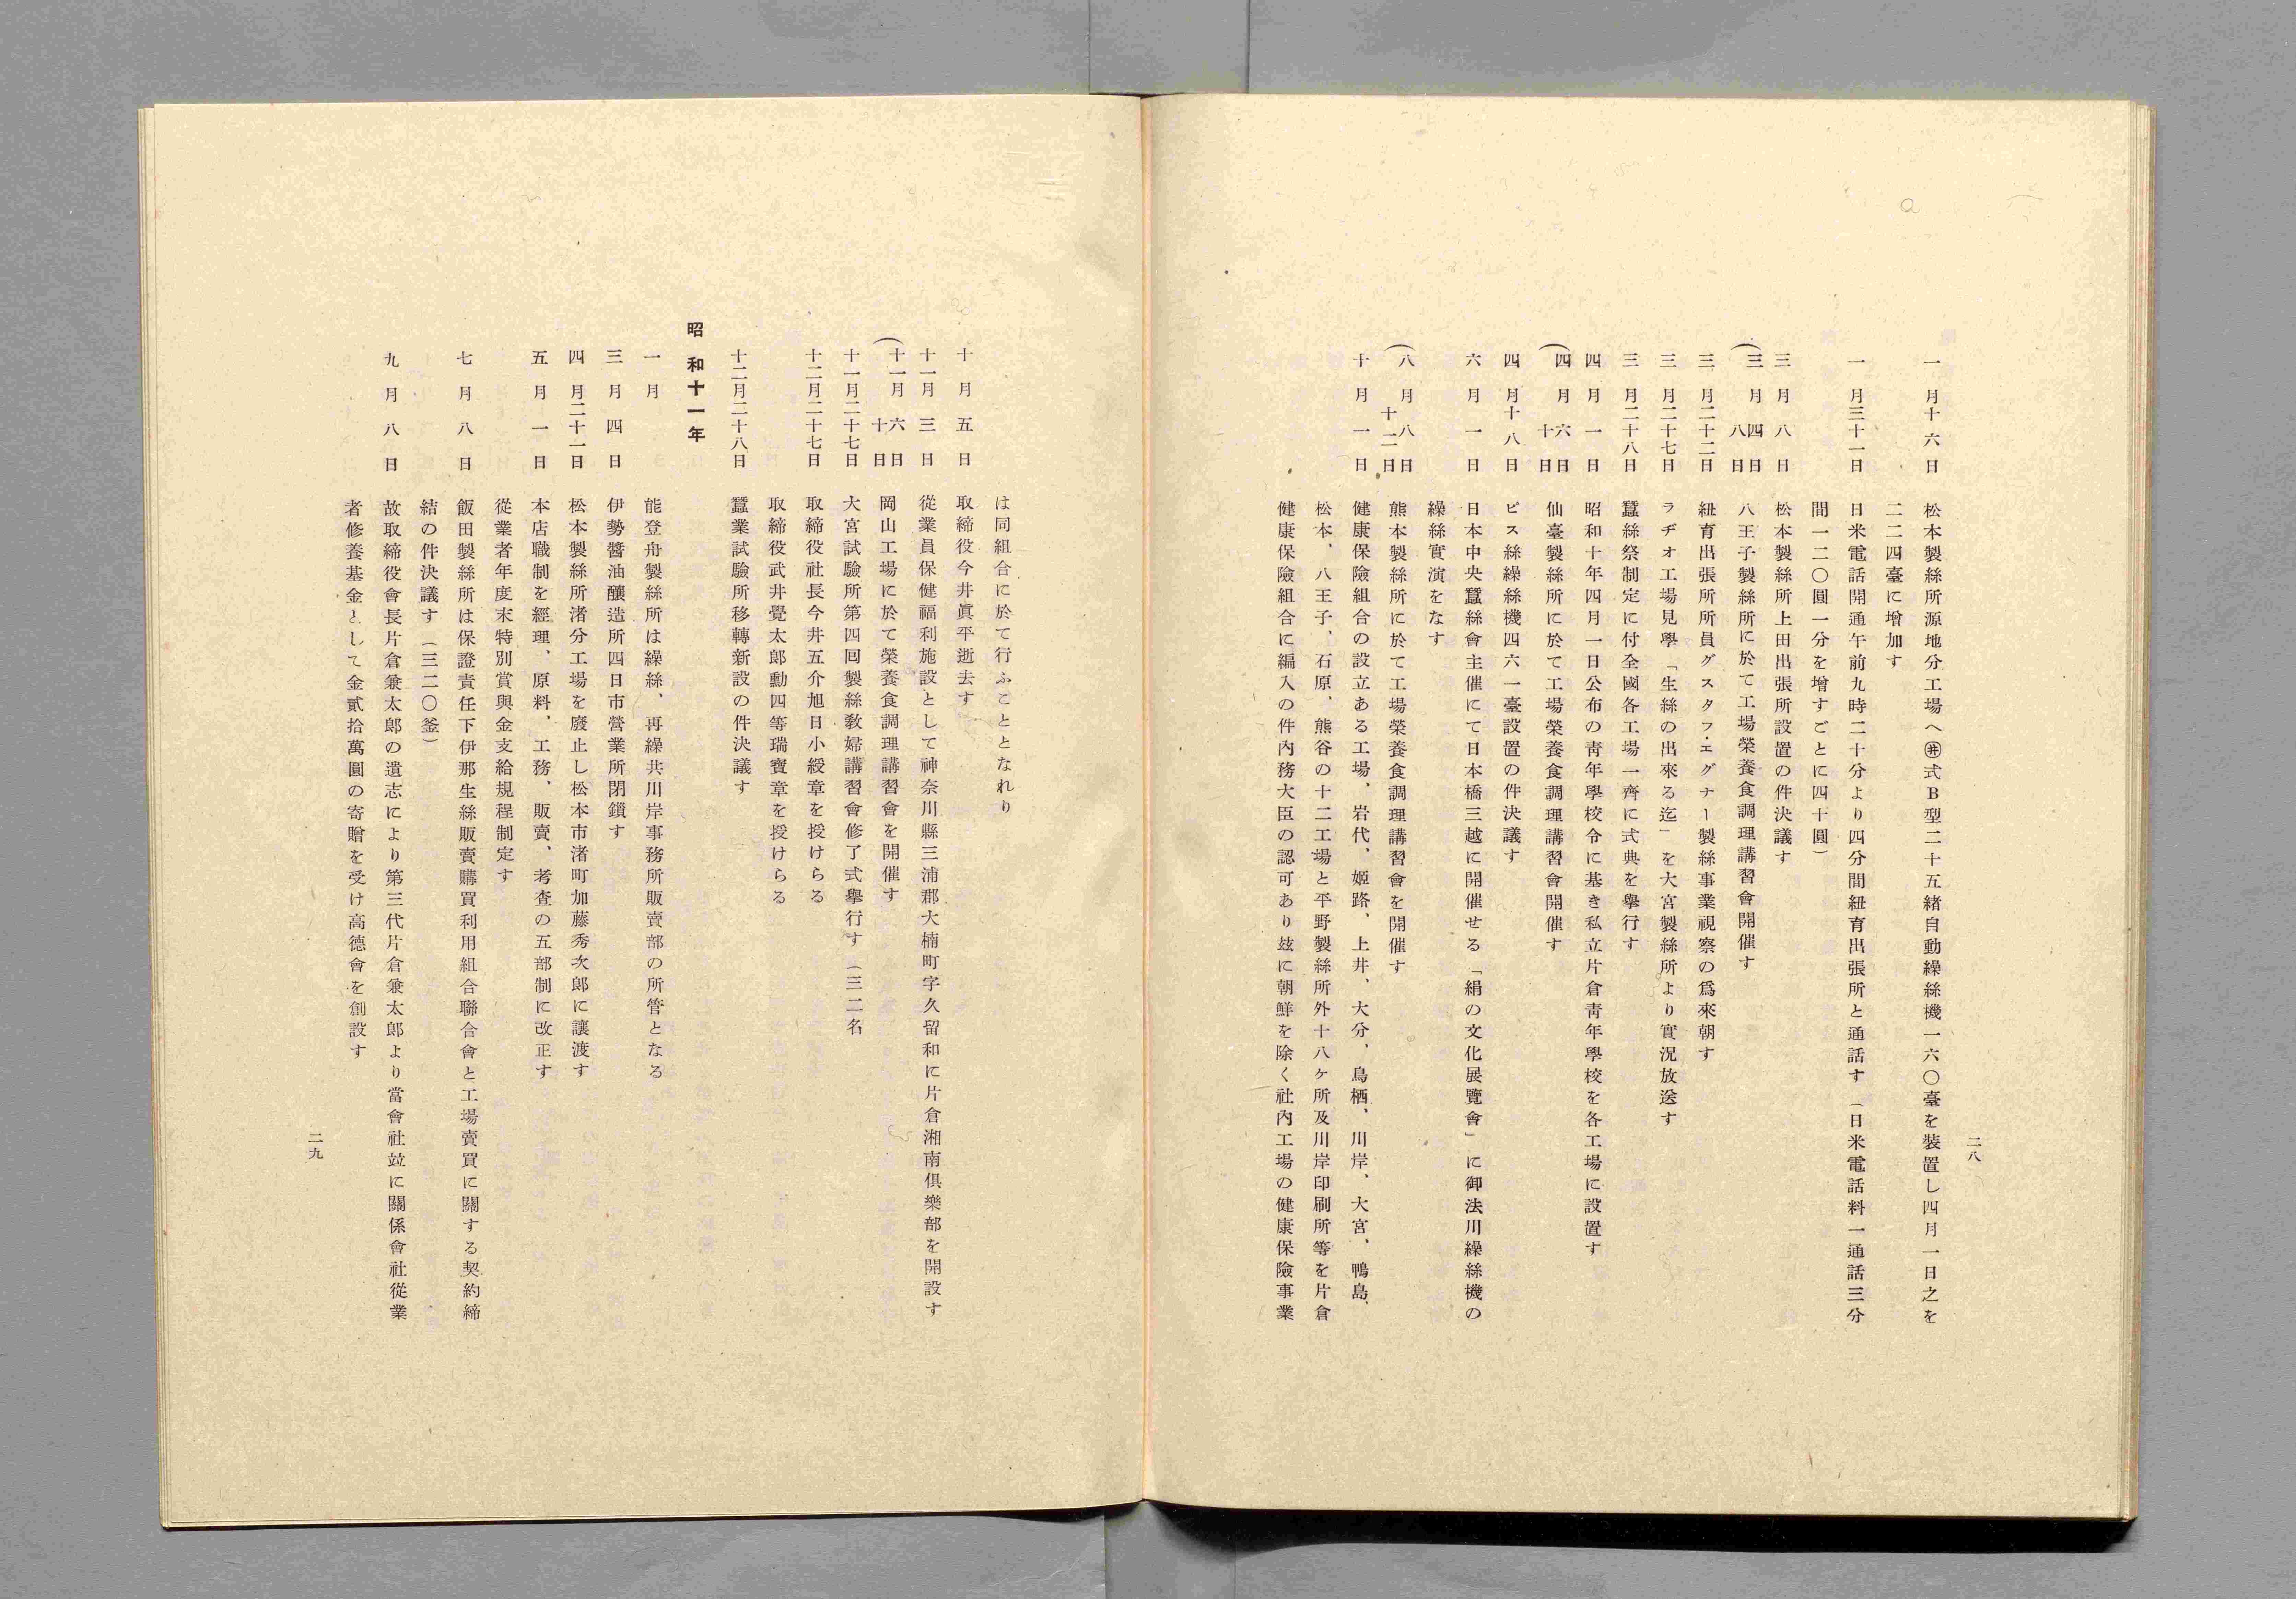 二八
一月十六日 松本製絲所源地分工場へ㊩式B型二十五緒自動繰絲機一六〇臺を裝置し四月一日之を
二二四臺に增加す
一月三十一日 日米電話開通午前九時二十分より四分間紐育出張所と通話す(日米電話料一通話三分
間一二〇圓一分を增すごとに四十圓)
三月八日 松本製絲所上田出張所設置の件決議す
(三月四日
八日 八王子製絲所に於て工場榮養食調理講習會開催す
三月二十二日 紐育出張所所員グスタフ・エグナー製絲事業視察の爲來朝す
三月二十七日 ラヂオ工場見學「生絲の出來る迄」を大宮製絲所より實況放送す
三月二十八日 蠶絲祭制定に付全國各工場一齊に式典を擧行す
四月一日 昭和十年四月一日公布の靑年學校令に基き私立片倉靑年學校を各工場に設置す
(四月六日
十日 仙臺製絲所に於て工場榮養食調理講習會開催す
四月十八日 ビス絲繰絲機四六一臺設置の件決議す
六月一日 日本中央蠶絲會主催にて日本橋三越に開催せる「絹の文化展覽會」に御法川繰絲機の
繰絲實演をなす
(八月八日
十二日 熊本製絲所に於て工場榮養食調理講習會を開催す
十月一日 健康保險組合の設立ある工場、岩代、姬路、上井、大分、鳥栖、川岸、大宮、鴨島、
松本、八王子、石原、熊谷の十二工場と平野製絲所外十八ケ所及川岸印刷所等を片倉
健康保險組合に編入の件內務大臣の認可あり玆に朝鮮を除く社內工場の健康保險事業
は同組合に於て行ふこととなれり
十月五日 取締役今井眞平逝去す
十一月三日 從業員保健福利施設として神奈川縣三浦郡大楠町字久留和に片倉湘南俱樂部を開設す
(十一月六日
十日 岡山工場に於て榮養食調理講習會を開催す
十一月二十七日 大宮試驗所第四回製絲敎婦講習會修了式擧行す(三二名
十二月二十七日 取締役社長今井五介旭日小綬章を授けらる
取締役武井覺太郞勳四等瑞寶章を授けらる
十二月二十八日 蠶業試驗所移轉新設の件決議す
昭和十一年
一月 能登舟製絲所は繰絲、再繰共川岸事務所販賣部の所管となる
三月四日 伊勢醬油釀造所四日市營業所閉鎖す
四月二十一日 松本製絲所渚分工場を廢止し松本市渚町加藤秀次郞に讓渡す
五月一日 本店職制を經理、原料、工務、販賣、考查の五部制に改正す
從業者年度末特別賞與金支給規程制定す
七月八日 飯田製絲所は保證責任下伊那生絲販賣購買利用組合聯合會と工場賣買に關する契約締
結の件決議す(三二〇釜)
九月八日 故取締役會長片倉兼太郞の遺志により第三代片倉兼太郞より當會社竝に關係會社從業
者修養基金として金貳拾萬圓の寄贈を受け高德會を創設す
二九